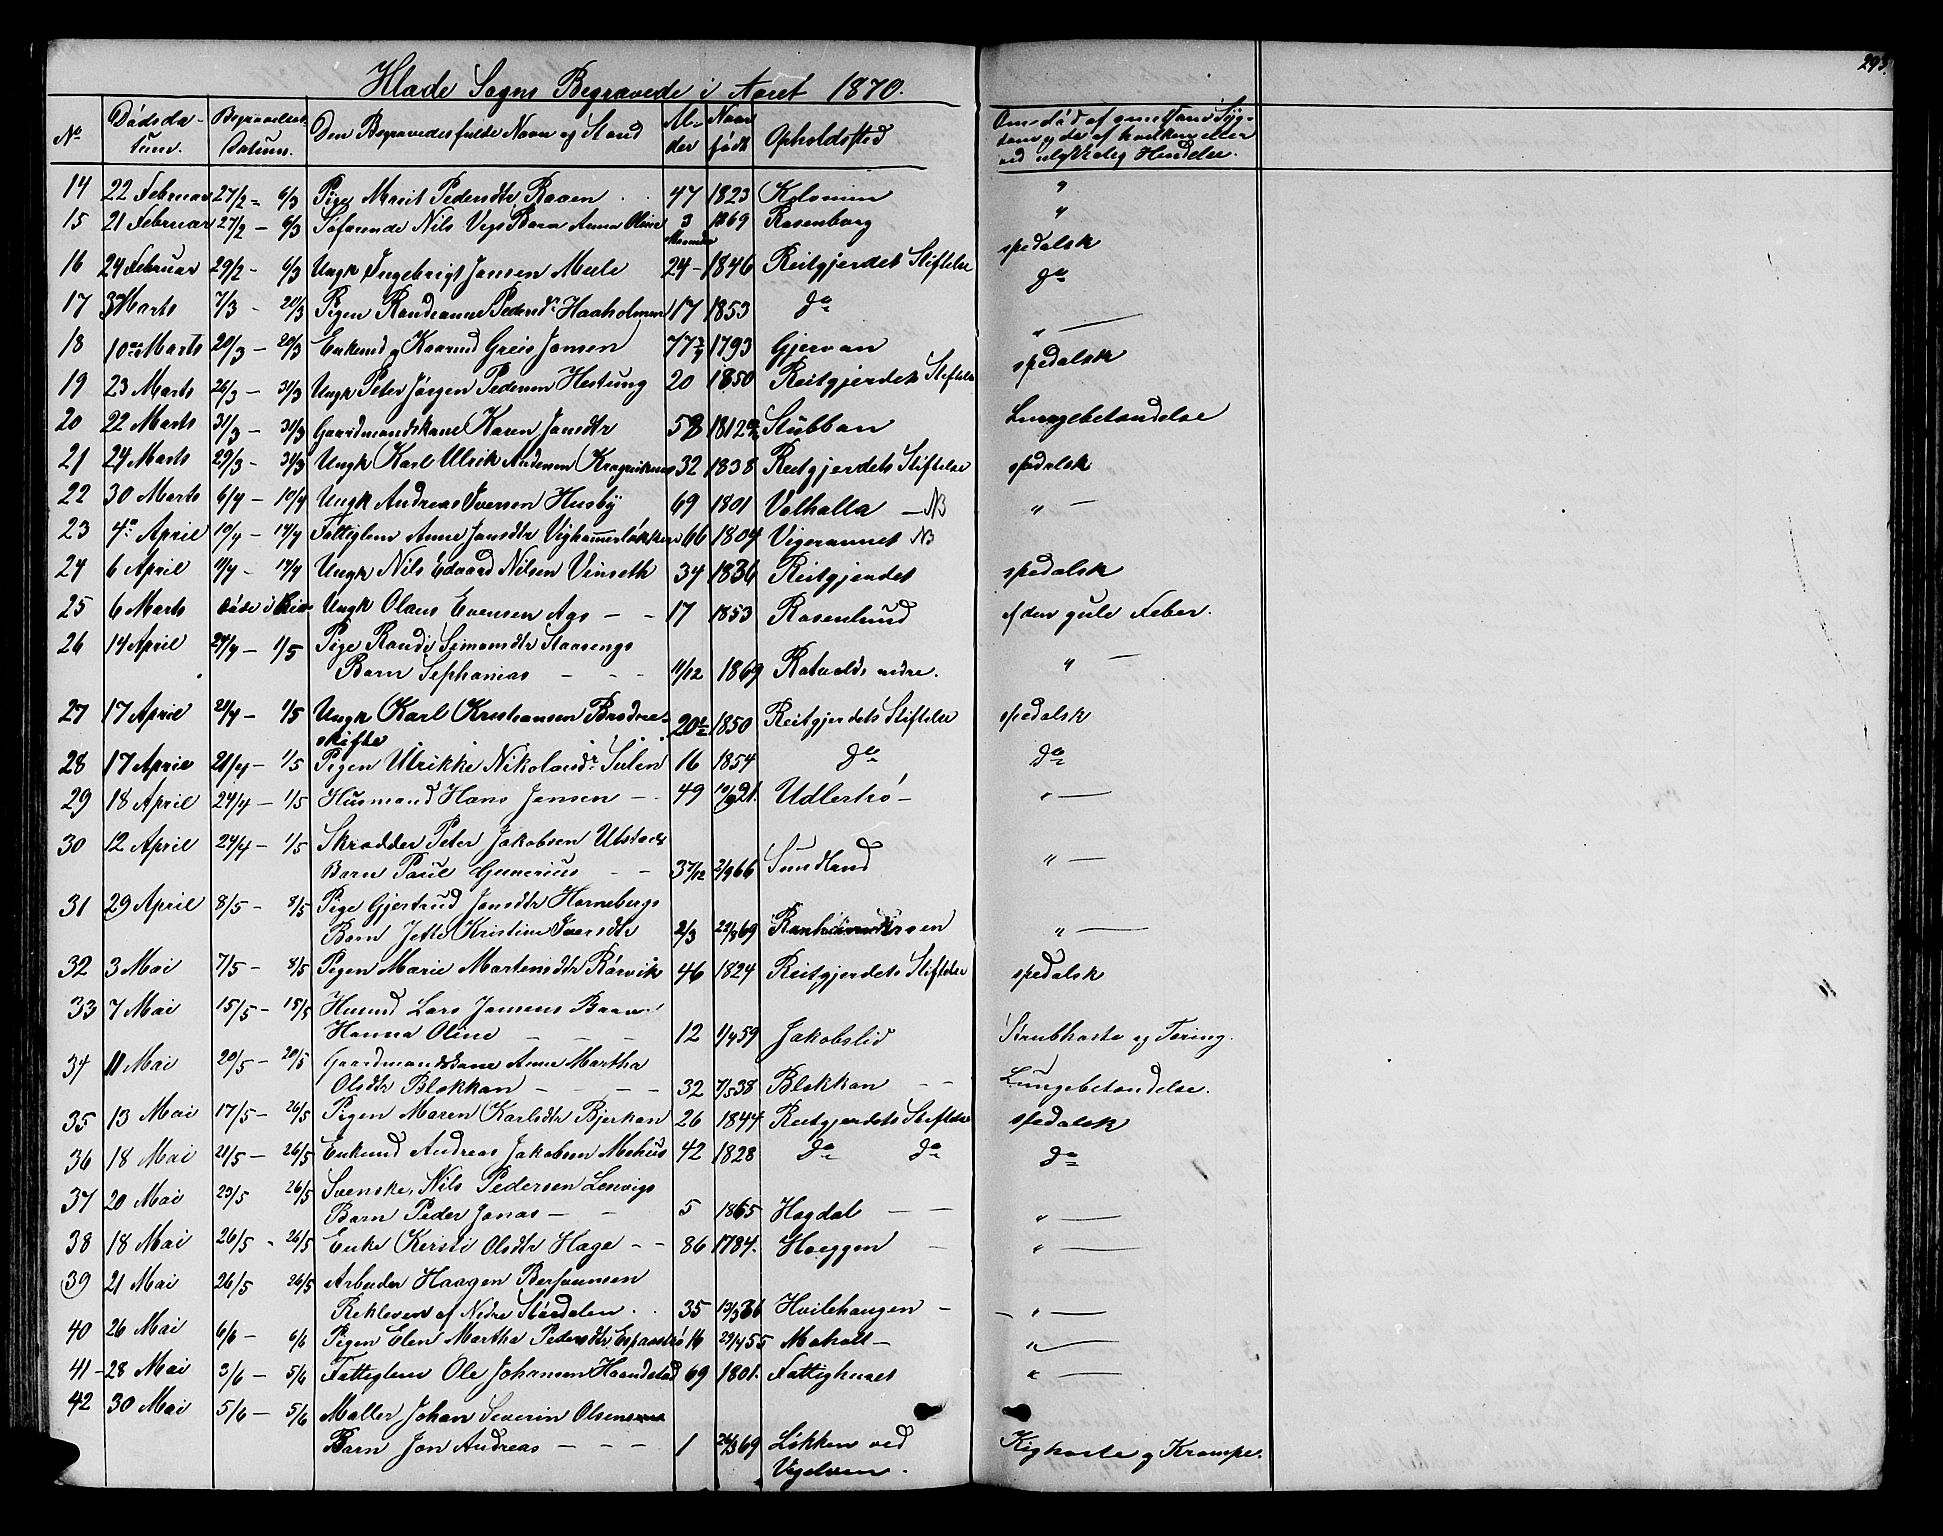 293.
Hlade Sogns Begravede i Aaret 1870.
No Dødsdatum. Begravelses Datum. Den Begravedes fulde Navn og Stand Alder Naar født Opholdssted Om død af smitsom Sygdom og da af hvilken eller ved ulykkelig Hendelse.
14 22 Februar 27/2 = 6/3 Pige Marit Pedersdtr Raaen 47 1823 Kolonien "
15 21 Februar 27/2 – 6/3 Søfarende Nils Vigs Barn Anna Oline 3 Maaneder 1869 Rosenborg "
16 24 Februar 29/2 – 6/3 Ungk Ingebrigt Jansen Meele 24 – 1846 Reitgjerdet Stiftelse spedalsk
17 3 Marts 7/3 – 20/3 Pigen Randeanne Pedersdr Haaholmen 17 1853 do do
18 10 Marts 20/3 – 20/3 Enkemd og Kaarmd Greis Jansen 77 3/4 1793 Gjervan " —
19 23 Marts 26/3 – 31/3 Ungk Peter Jørgen Pedersen Hestung 20 1850 Reitgjerdets Stiftelse spedalsk
20 22 Marts 31/3 – 31/3 Gaardmandskone Karen Jansdtr 58 1812 Stubban Lungebetændelse
21 24 Marts 29/3 – 31/3 Ungk Karl Ulrik Andersen 32 1838 Reitgjerdets Stiftelse spedalsk
22 30 Marts 6/4 – 10/4 Ungk Andreas Iversen Husby 69 1801 Valhalla – NB " —
23 4de April 10/4 – 17/4 Fattiglem Anne Jansdtr Vighammerløkken 66 1804 NB
24 6 April 11/4 – 17/4 Ungk Nils Edvard Nilsen Vinseth 34 1836 Reitgjerdet spedalsk
25 6 Marts Døde i Rio Ungk Olaus Evensen Aas – – 17 1853 Rosenlund af den gule Feber.
26 14 April 24/4 – 1/5 Pige Randi Simonsdtr Staasengs
Barn Sephanias – – – 11/12 1869 Rotvolds nedre. " —
27 17 April 21/4 – 1/5 Ungk Karl Kristiansen Brødre-
skifte 20 1850 Reitgjerdets Stiftelse spedalsk
28 17 April 21/4 – 1/5 Pigen Ulrikke Nikolaisdr Sulen 16 1854 do do
29 18 April 24/4 – 1/5 Husmand Hans Jansen – – 49 21. Udlertrø – " —
30 12 April 24/4 – 1/5 Skrædder Peter Jakobsen Utstads
Barn Paul Gunerius – – 3 7/12 2/9 66 Sundland " —
31 29 April 8/5 – 8/5 Pige Gjertrud Jonsdtr Hornebergs
Barn Jette Kristine Iversdtr 2/3 22/8 69 " —
32 3 Mai 7/5 – 8/5 Pigen Marie Martensdtr Rørvik 46 1824 Reitgjerdets Stiftelse spedalsk
33 7 Mai 15/5 – 15/5 Husmd Lars Jansens Barn
Hanna Oline – – – 12 1/4 59 Jakobslid Strubhoste og Tæring.
34 11 Mai 20/5 – 20/5 Gaardmandskone Anne Martha
Olsdtr Blakkan – – – – 32 7/5 38 Blakkan – – Lungebetændelse.
35 13 Mai 17/5 – 26/5 Pigen Maren Karlsdtr Bjerkan 26 1844 Reitgjerdets Stiftelse spedalsk
36 18 Mai 21/5 – 26/5 Enkemd Andreas Jakobsen Mehus 42 1828 do do do
37 20 Mai 23/5 26/5 Svenske, Nils Pedersen Lervigs
Barn Peder Jonas – – 5 1865 Hagdal – – " —
38 18 Mai 26/5 – 26/5 Enke Kersti Olsdtr Hage – – 86 1784. Hoeggen – " —
39 21 Mai 26/5 26/5 Arbeider Haagen Bersvensen
Rekleven af Nedre Stördalen . . 35 13/3 36 Hvilehaugen – – " —
40 26 Mai 6/6 – 6/6 Pigen Elen Martha Pedersdtr 16 29/4 55 Moholt – " —
41 – 28 Mai 3/6 – 5/6 Fattiglem Ole Johansen Haandstad 69 1801. Fattighuset " —
42 30 Mai 5/6 – 5/6 Maller Johan Severin Olsens
Barn Jon Andreas – – – 1 69 Løkken ved
Vigelven. Kighoste og Krampe.